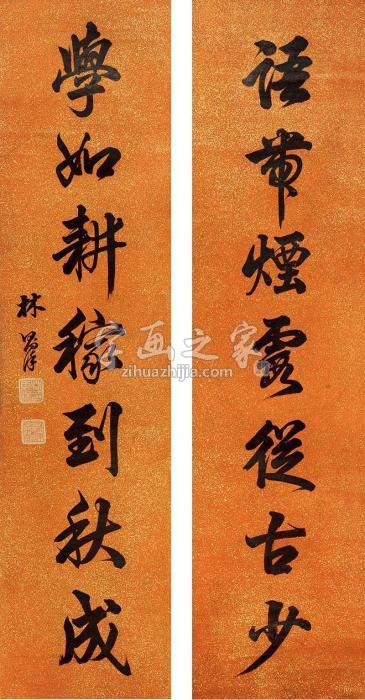 語帶煙霞從古少
學如耕稼到秋成
林
字画之家
zihuazhijia.com